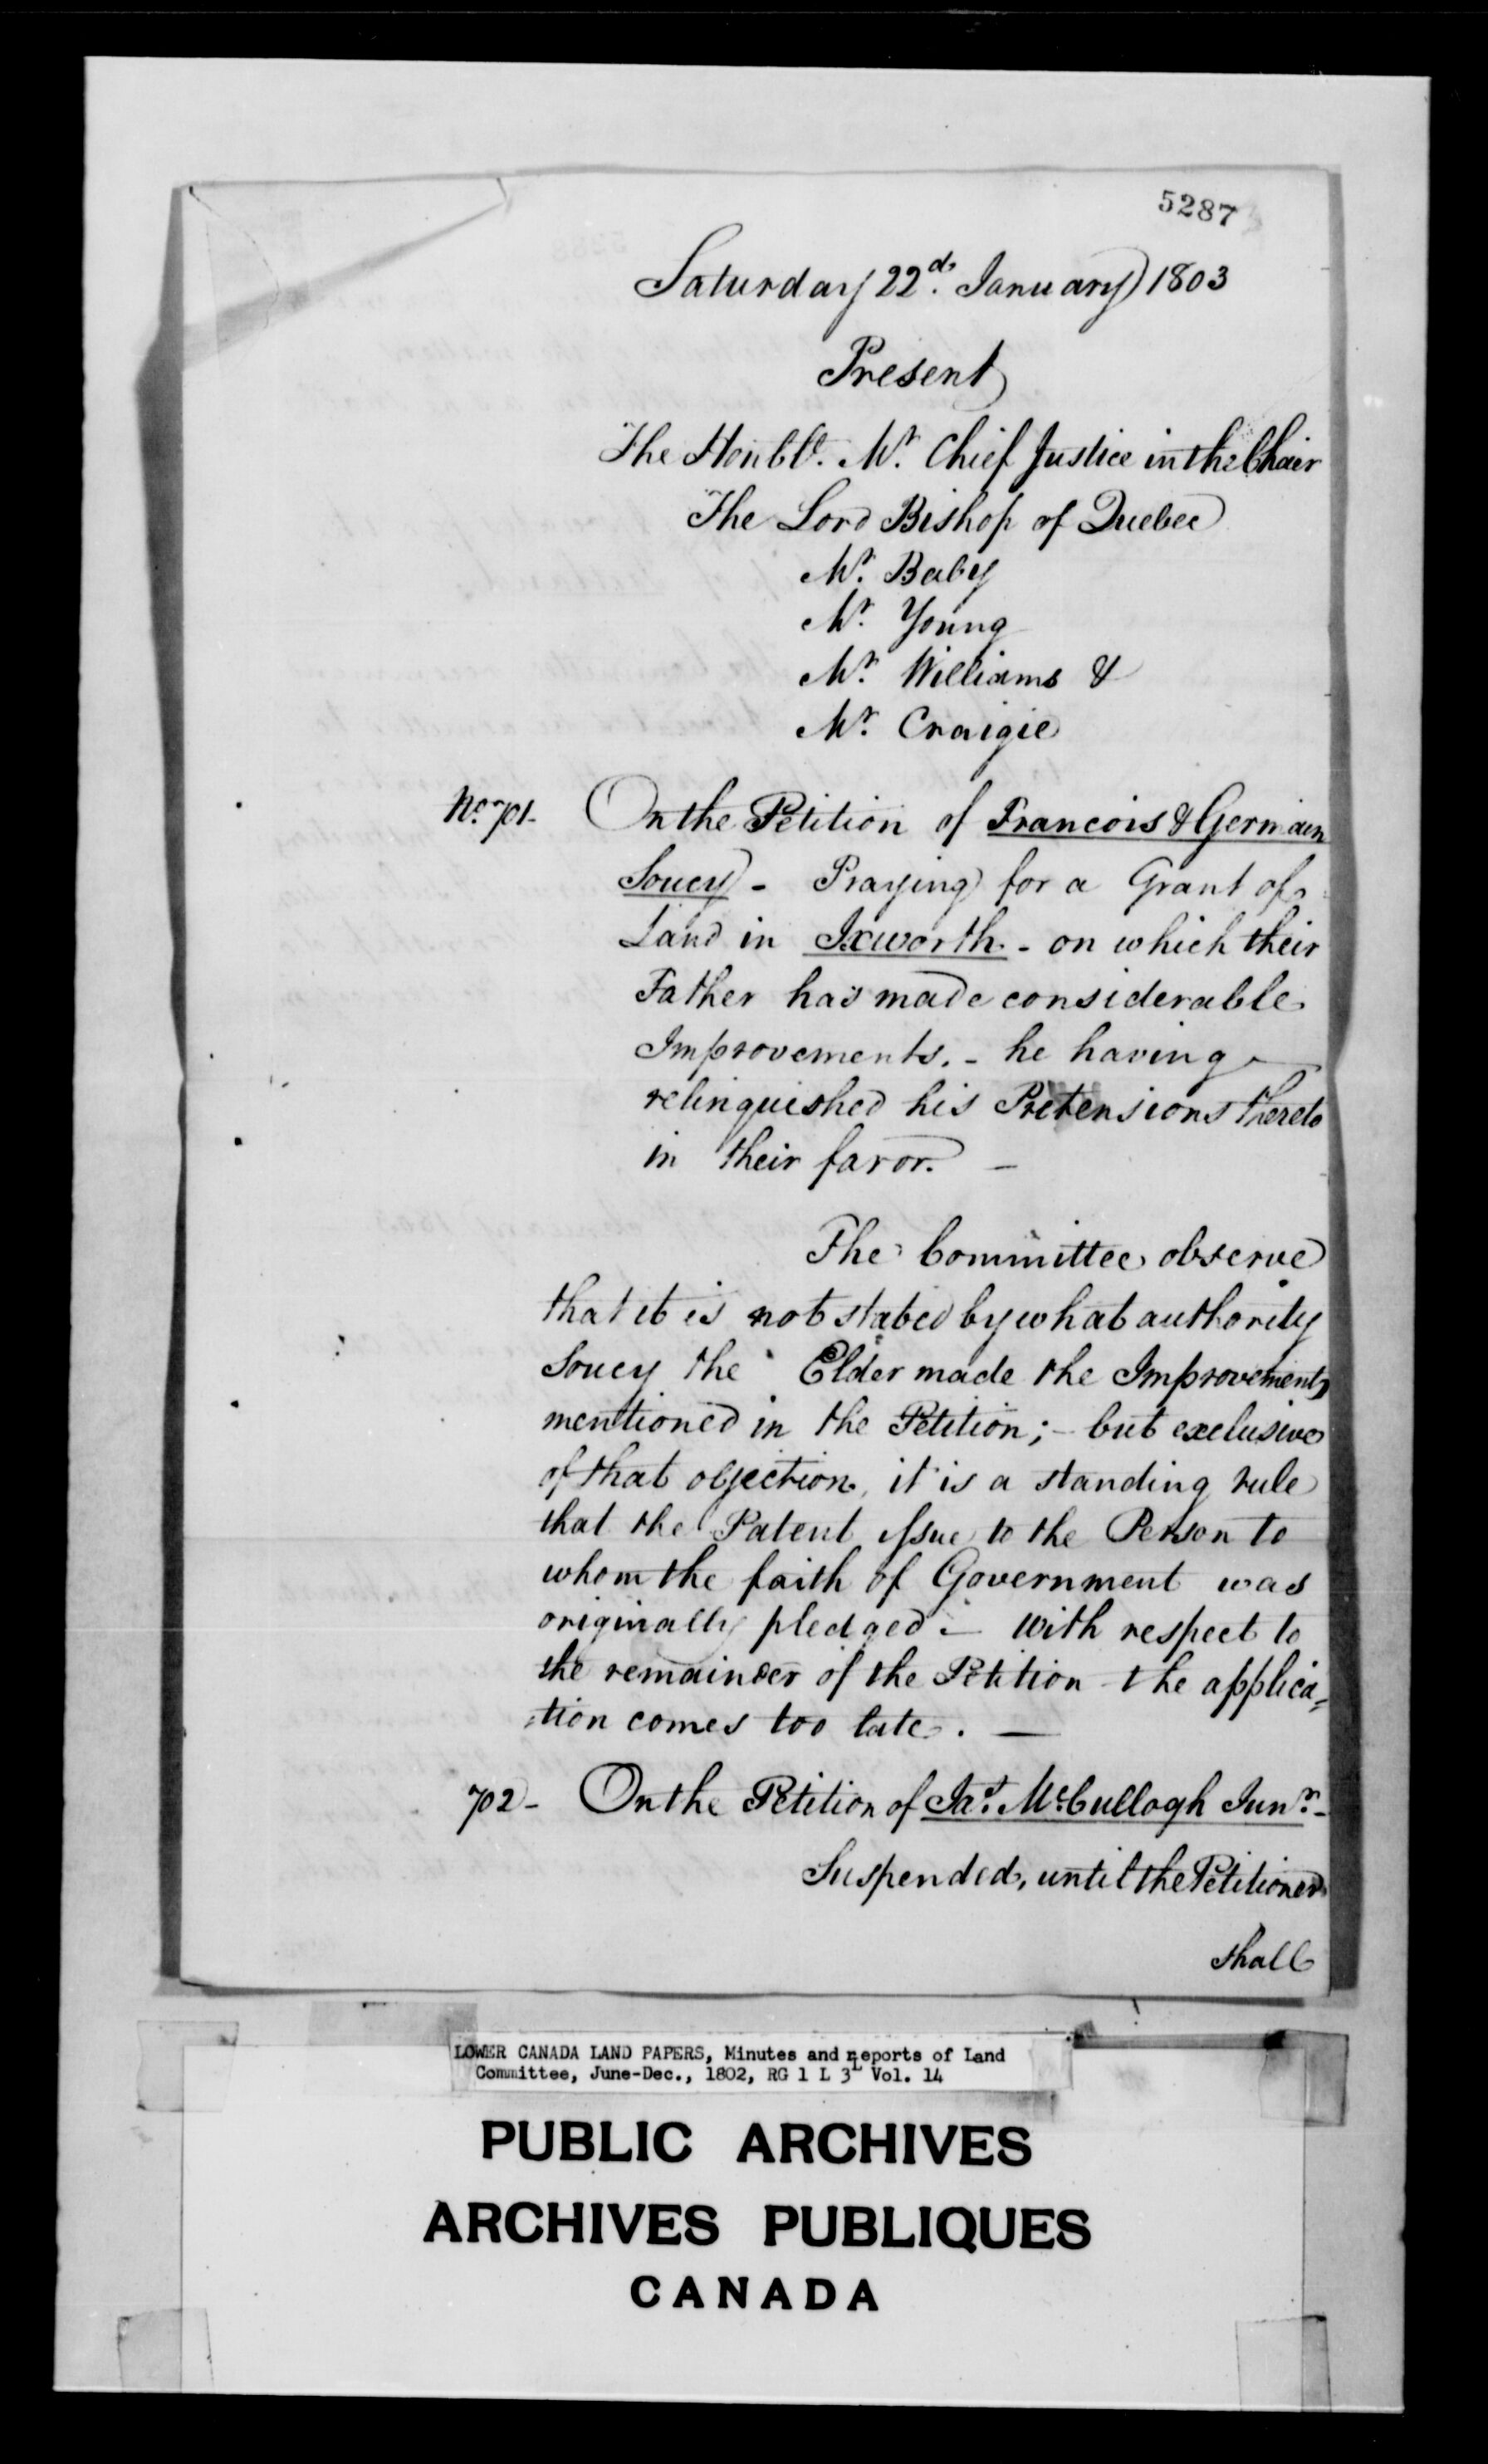 5287
Saturday 22d. January 1803
Present
The Honble. Mr. Chief Justice in the Chair
The Lord Bishop of Quebec
Mr. Baby
Mr. Young
Mr. Williams &
Mr. Craigie
No. 701- On the Petition of Francois & Germain
Soucy - Praying for a Grant of
Land in Ixworth - on which their
Father has made considerable
Improvements. - he having
relinquished his Pretensions thereto
in their favor. -
The Committee observe
that it is not stated by what authority
Soucy the Elder made the Improvements
mentioned in the Petition; - but exclusive
of that objection, it is a standing rule
that the Patent issue to the Person to
whom the faith of Government was
originally pledged - with respect to
the remainder of the Petition the applica=
=tion comes too late. -
702 - On the Petition of Jas. McCullogh Junr. -
Suspended, until the Petitioner
shall
LOWER CANADA LAND PAPERS, Minutes and Reports of Land
Committee, June-Dec., 1802, RG 1 L 3L Vol. 14
PUBLIC ARCHIVES
ARCHIVES PUBLIQUES
CANADA